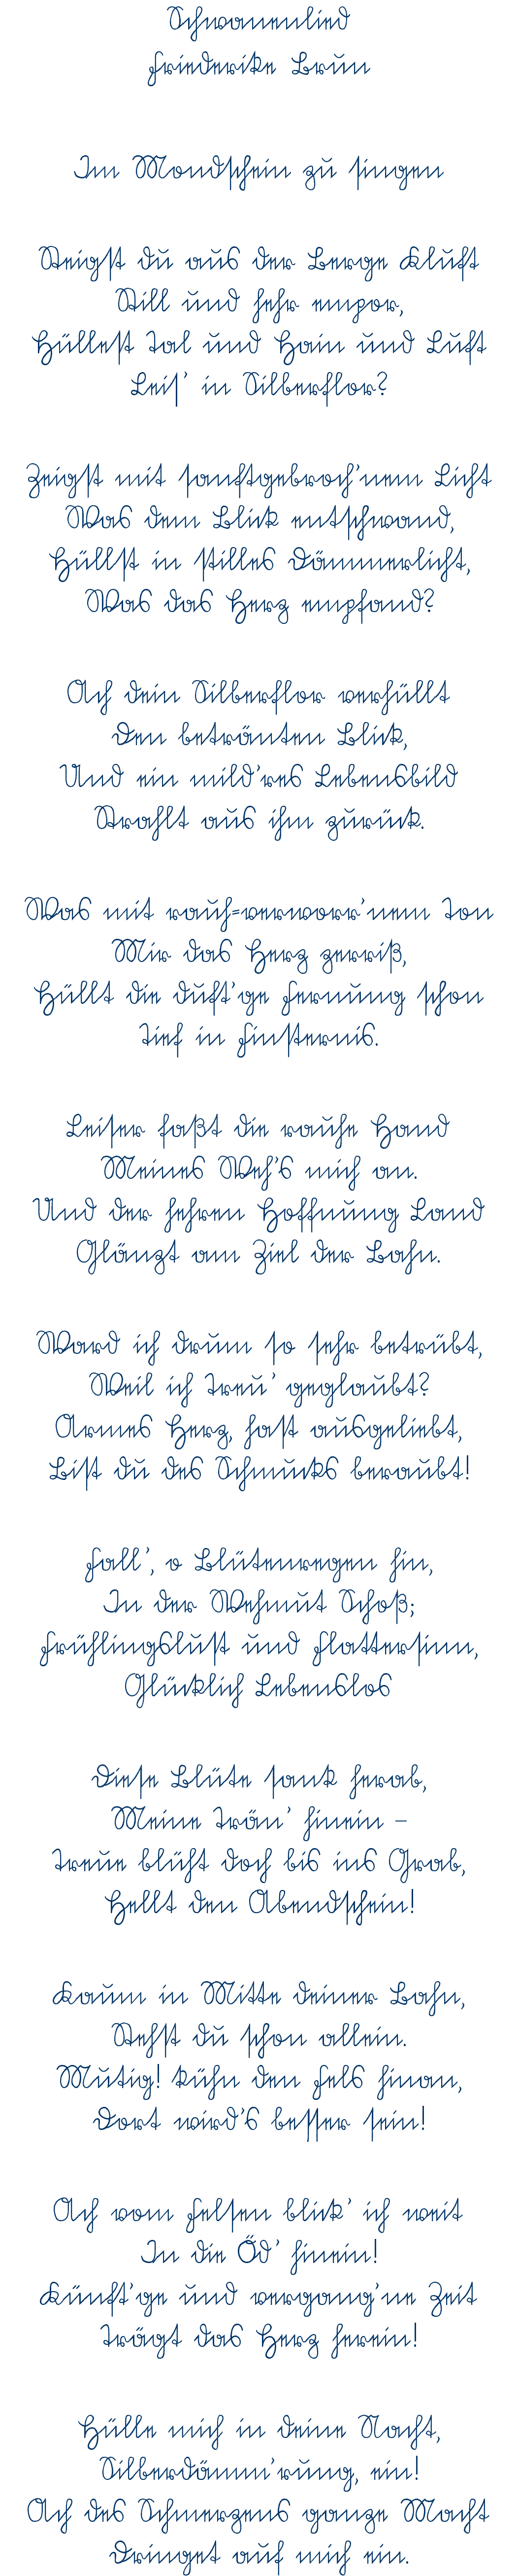 Schwanenlied
Friederike Brun
Im Mondschein zu singen
Steigst du aus der Berge Kluft
Still und hehr empor,
Hüllest Tal und Hain und Luft
Leis’ in Silberflor?
Zeigst mit sanftgebroch’nem Licht
Was dem Blick entschwand,
Hüllst in stilles Dämmerlicht,
Was das Herz empfand?
Ach dein Silberflor verhüllt
Den betränten Blick,
Und ein mild’res Lebensbild
Strahlt aus ihm zurück.
Was mit rauh=verworr’nem Ton
Mir das Herz zerriß,
Hüllt die duft’ge Fernung schon
Tief in Finsternis.
Leiser faßt die rauhe Hand
Meines Weh’s mich an.
Und der hehren Hoffnung Land
Glänzt am Ziel der Bahn.
Ward ich drum so sehr betrübt,
Weil ich treu’ geglaubt?
Armes Herz, hast ausgeliebt,
Bist du des Schmucks beraubt!
Fall’, o Blütenregen hin,
In der Wehmut Schoß;
Frühlingslust und Flattersinn,
Glücklich Lebenslos
Diese Blüte sank herab,
Meine Trän’ hinein –
Treue blüht doch bis ins Grab,
Hellt den Abendschein!
Kaum in Mitte deiner Bahn,
Stehst du schon allein.
Mutig! kühn den Fels hinan,
Dort wird’s besser sein!
Ach vom Felsen blick’ ich weit
In die Öd’ hinein!
Künft’ge und vergang’ne Zeit
Trägt das Herz herein!
Hülle mich in deine Nacht,
Silberdämm’rung, ein!
Ach des Schmerzens ganze Macht
Dringet auf mich ein.